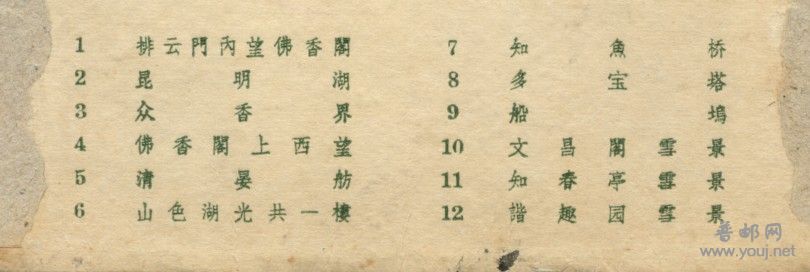 1 排云門內望佛香閣
2 昆明湖
3 众香界
4 佛香閣上西望
5 清晏舫
6 山色湖光共一樓
7 知魚桥
8 多宝塔
9 船塢
10 文昌閣雪景
11 知春亭雪景
12 諧趣园雪景
普邮网
www.youj.net